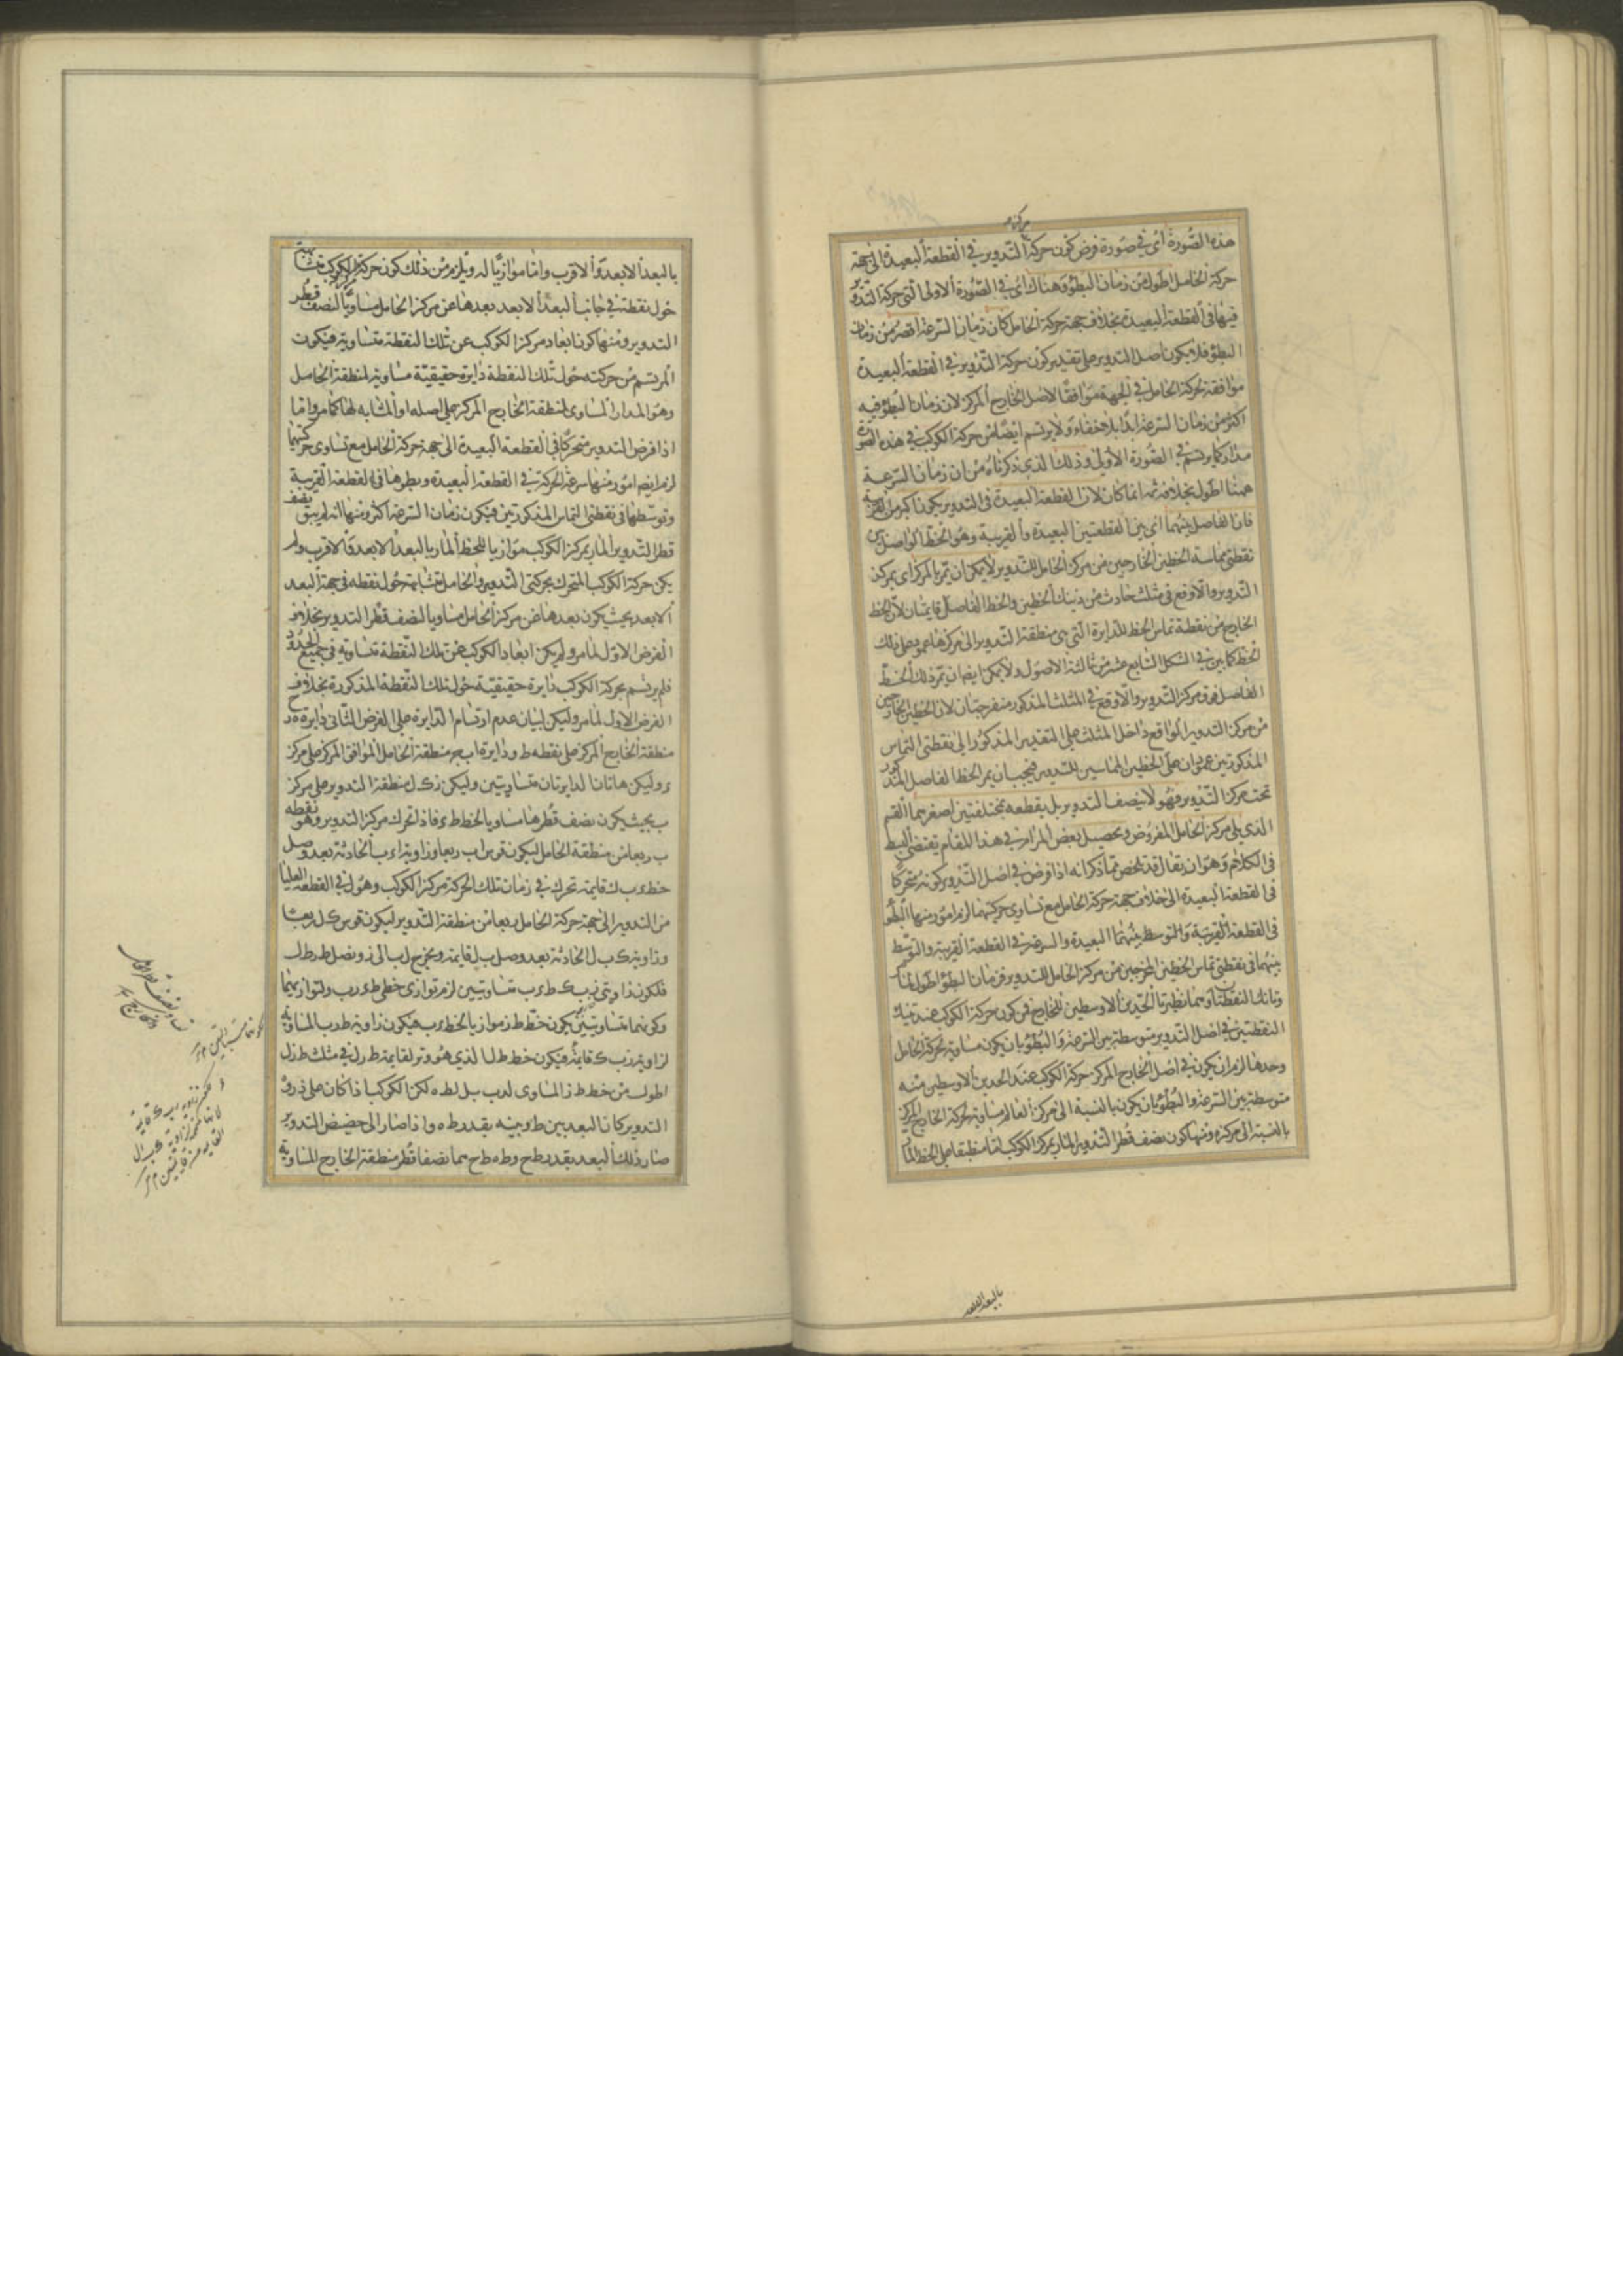 هذه الصورة اى فى صورة فرض كون حركة التدوير فى القطعة البعيدة الى جهة
حركة الحامل اطول من زمان البطؤ وهناك اى فى الصورة الاولى التى حركة التدوير
فيها فى القطعة البعيدة بخلاف جهة حركة الحامل كان زمان السرعة اقصر من زمان
البطؤ فلا يكون اصل التدوير على تقدير كون حركة التدوير فى القطعة البعيدة
موافقة لحركة الحامل فى الجهة موافقا لاصل الخارج المركز لان زمان البطؤ فيه
اكثر من زمان السرعة ابدا بلا خفاء ولا يرتسم ايضا من حركة الكوكب فى هذه الصورة
مدار كما يرتسم فى الصورة الاولى وذلك الذى ذكرناه من ان زمان السرعة
ههنا اطول بخلافه ثمه انما كان لان القطعة البعيدة فى التدوير يكون اكبر من القريبة
فان الفاصل بينهما اى بين القطعتين البعيدة والقريبة وهو الخط الواصل بين
نقطتى مماسة الخطين الخارجين من مركز الحامل للتدوير لا يمكن ان يمر بالمركز اى بمركز
التدوير والا وقع فى مثلث حادث من ذينك الخطين والخط الفاصل قايمتان لان الخط
الخارج من نقطة تماس الخط للدايرة التى هى منطقة التدوير الى مركزها عمود على ذلك
الخط كما بين فى الشكل السابع عشر من ثالثة الاصول ولا يمكن ايضا ان يمر ذلك الخط
الفاصل فوق مركز التدوير والا وقع فى المثلث المذكور منفرجتان لان الخطين الخارجين
من مركز التدوير الواقع داخل المثلث على التقدير المذكور الى نقطتى التماس
المذكورتين عمودان على الخطين المماسين للتدوير فيجب ان يمر الخط الفاصل المذكور
تحت مركز التدوير فهو لا ينصف التدوير بل يقطعه بمختلفتين اصغرهما القسم
الذى يلى مركز الحامل المفروض وتحصيل بعض المرام فى هذا المقام يقتضى البسط
فى الكلام وهو ان يقال قد تلخص مما ذكر انه اذا فرض فى اصل التدوير كونه متحركا
فى القطعة البعيدة الى خلاف جهة حركة الحامل مع تساوى حركتهما لزم امور منها البطؤ
فى القطعة البعيدة والسرعة فى القطعة القريبة والتوسط
بينهما فى نقطتى تماس الخطين المخرجين من مركز الحامل للتدوير فزمان البطؤ اطول لما مر
وتانك النقطتان وهما نظيرتا الحدين الاوسطين للخارج فى كون حركة الكوكب عند تينك
النقطتين فى اصل التدوير متوسطة بين السرعة والبطؤ بان يكون مساوية لحركة الحامل
وحدها لزم ان يكون فى اصل الخارج المركز حركة الكوكب عند الحدين الاوسطين منه
متوسطة بين السرعة والبطؤ بان يكون بالنسبة الى مركز العالم مساوية لحركة الخارج المركز
بالنسبة الى مركزه ومنها كون نصف قطر التدوير المار بمركز الكوكب اما منطبقا على الخط المار
بالبعد الابعد
بالبعد الابعد والاقرب واما موازيا له ويلزم من ذلك كون حركة مركز الكوكب متشابهة
حول نقطة فى جانب البعد الابعد بعدها عن مركز الحامل مساويا لنصف قطر
التدوير ومنها كون ابعاد مركز الكوكب عن تلك النقطة متساوية فيكون
المرتسم من حركته حول تلك النقطة دايرة حقيقية مساوية لمنطقة الحامل
وهو المدار المساوى لمنطقة الخارج المركز على اصله او المشابه لها كما مر واما
اذا فرض التدوير متحركا فى القطعة البعيدة الى جهة حركة الحامل مع تساوى حركتهما
لزم ايضا امور منها سرعة الحركة فى القطعة البعيدة وبطؤها فى القطعة القريبة
وتوسطها فى نقطتى التماس المذكورتين فيكون زمان السرعة اكثر ومنها انه لم يبق نصف
قطر التدوير المار بمركز الكوكب موازيا للخط المار بالبعد الابعد والاقرب ولم
يكن حركة الكوكب المتحرك بحركتى التدوير والحامل متشابهة حول نقطه فى جهة البعد
الابعد بحيث يكون بعدها عن مركز الحامل مساويا لنصف قطر التدوير بخلاف
الفرض الاول لما مر ولم يكن ابعاد الكوكب عن تلك النقطة متساوية فى جميع الحدود
فلم يرتسم بحركة الكوكب دايرة حقيقية حول تلك النقطة المذكورة بخلاف
الفرض الاول لما مر وليكن لبيان عدم ارتسام الدايرة على الفرض الثانى دايرة ه د ح
منطقة الخارج المركز على نقطه ط ودايرة ا ب ج منطقة الحامل الموافق المركز على مركز
ء وليكن هاتان الدايرتان متساويتين وليكن ز ك ل منطقة التدوير على مركز
ب بحيث يكون نصف قطرها مساويا لخط ط ء فاذا تحرك مركز التدوير وهو نقطه
ب ربعا من منطقة الحامل ليكون قوس ا ب ربعا وزاوية ا ء ب الحادثة بعد وصل
خط ء ب قايمة تحرك فى زمان تلك الحركة مركز الكوكب وهو ل فى القطعة العليا
من التدوير الى جهة حركة الحامل ربعا من منطقة التدوير ليكون قوس ك ل ربعا
وزاوية ك ب ل الحادثة بعد وصل ب ل قايمة ويخرج ل ب الى ز ونصل ط ز ط ل
فلكون زاويتى ز ب ك ط ء ب متساويتين لزم توازى خطى ط ء ز ب ولتوازيهما
وكونهما متساويتين يكون خط ط ز موازيا لخط ء ب فيكون زاوية ط ز ب المساوية
لزاوية ز ب ك قايمة فيكون خط ط ل الذى هو وتر لقايمة ط ز ل فى مثلث ط ز ل
اطول من خط ط ز المساوى لء ب بل لط ه لكن الكوكب اذا كان على ذروة
التدوير كان البعد بين ط وبينه بقدر ط ه واذا صار الى حضيض التدوير
صار ذلك البعد بقدر ط ح وط ه ط ح هما نصفا قطر منطقة الخارج المساوية